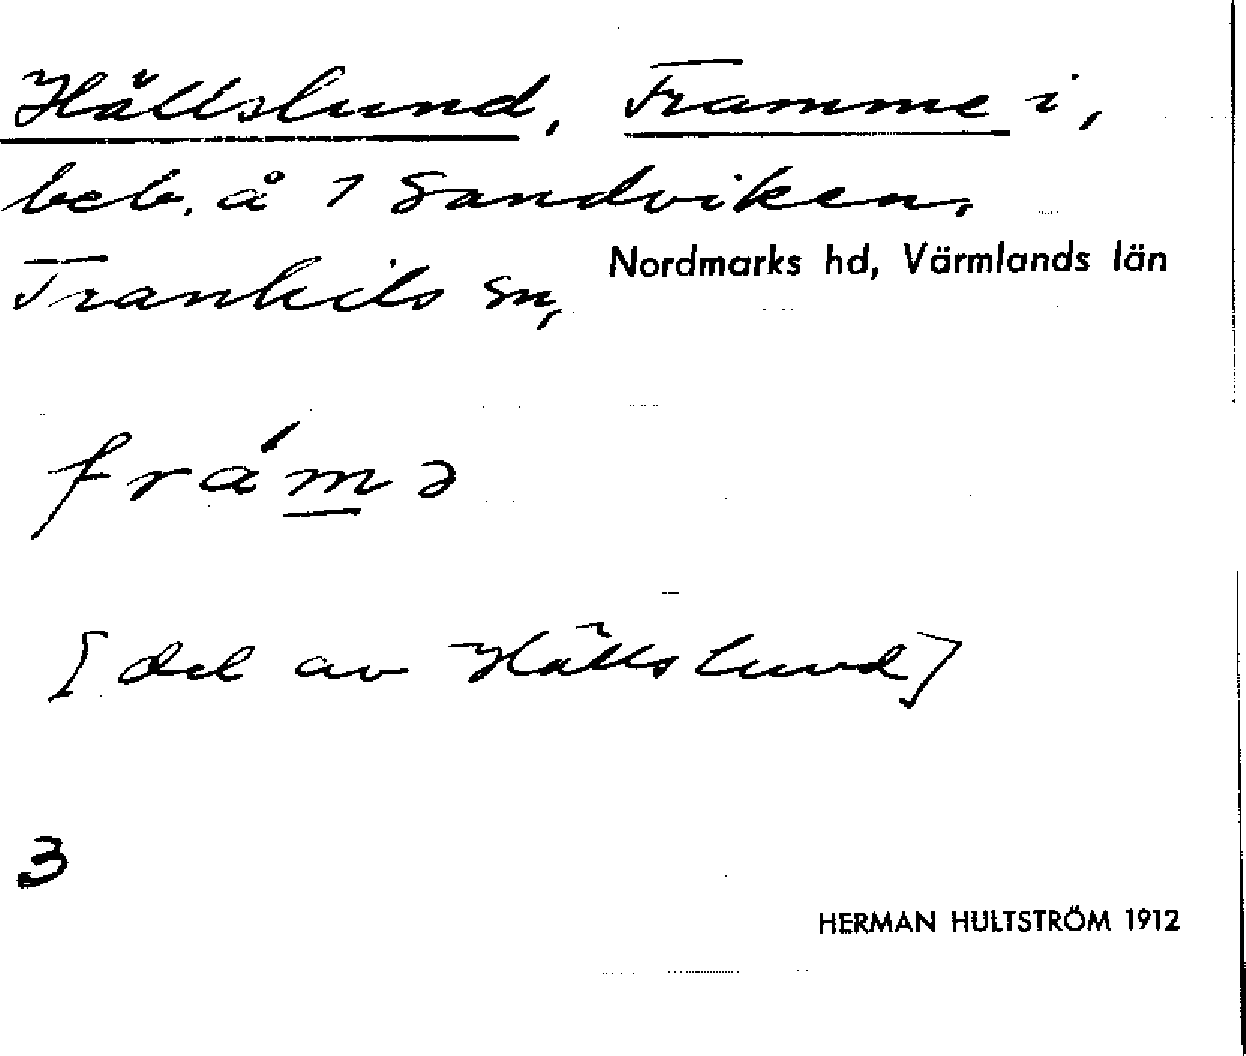 Hällslund, Framme i,
beb. å 1 Sandviken,
Trankils sn, Nordmarks hd, Värmlands län
frám̲ə
[del av Hällslund]
3
HERMAN HULTSTRÖM 1912